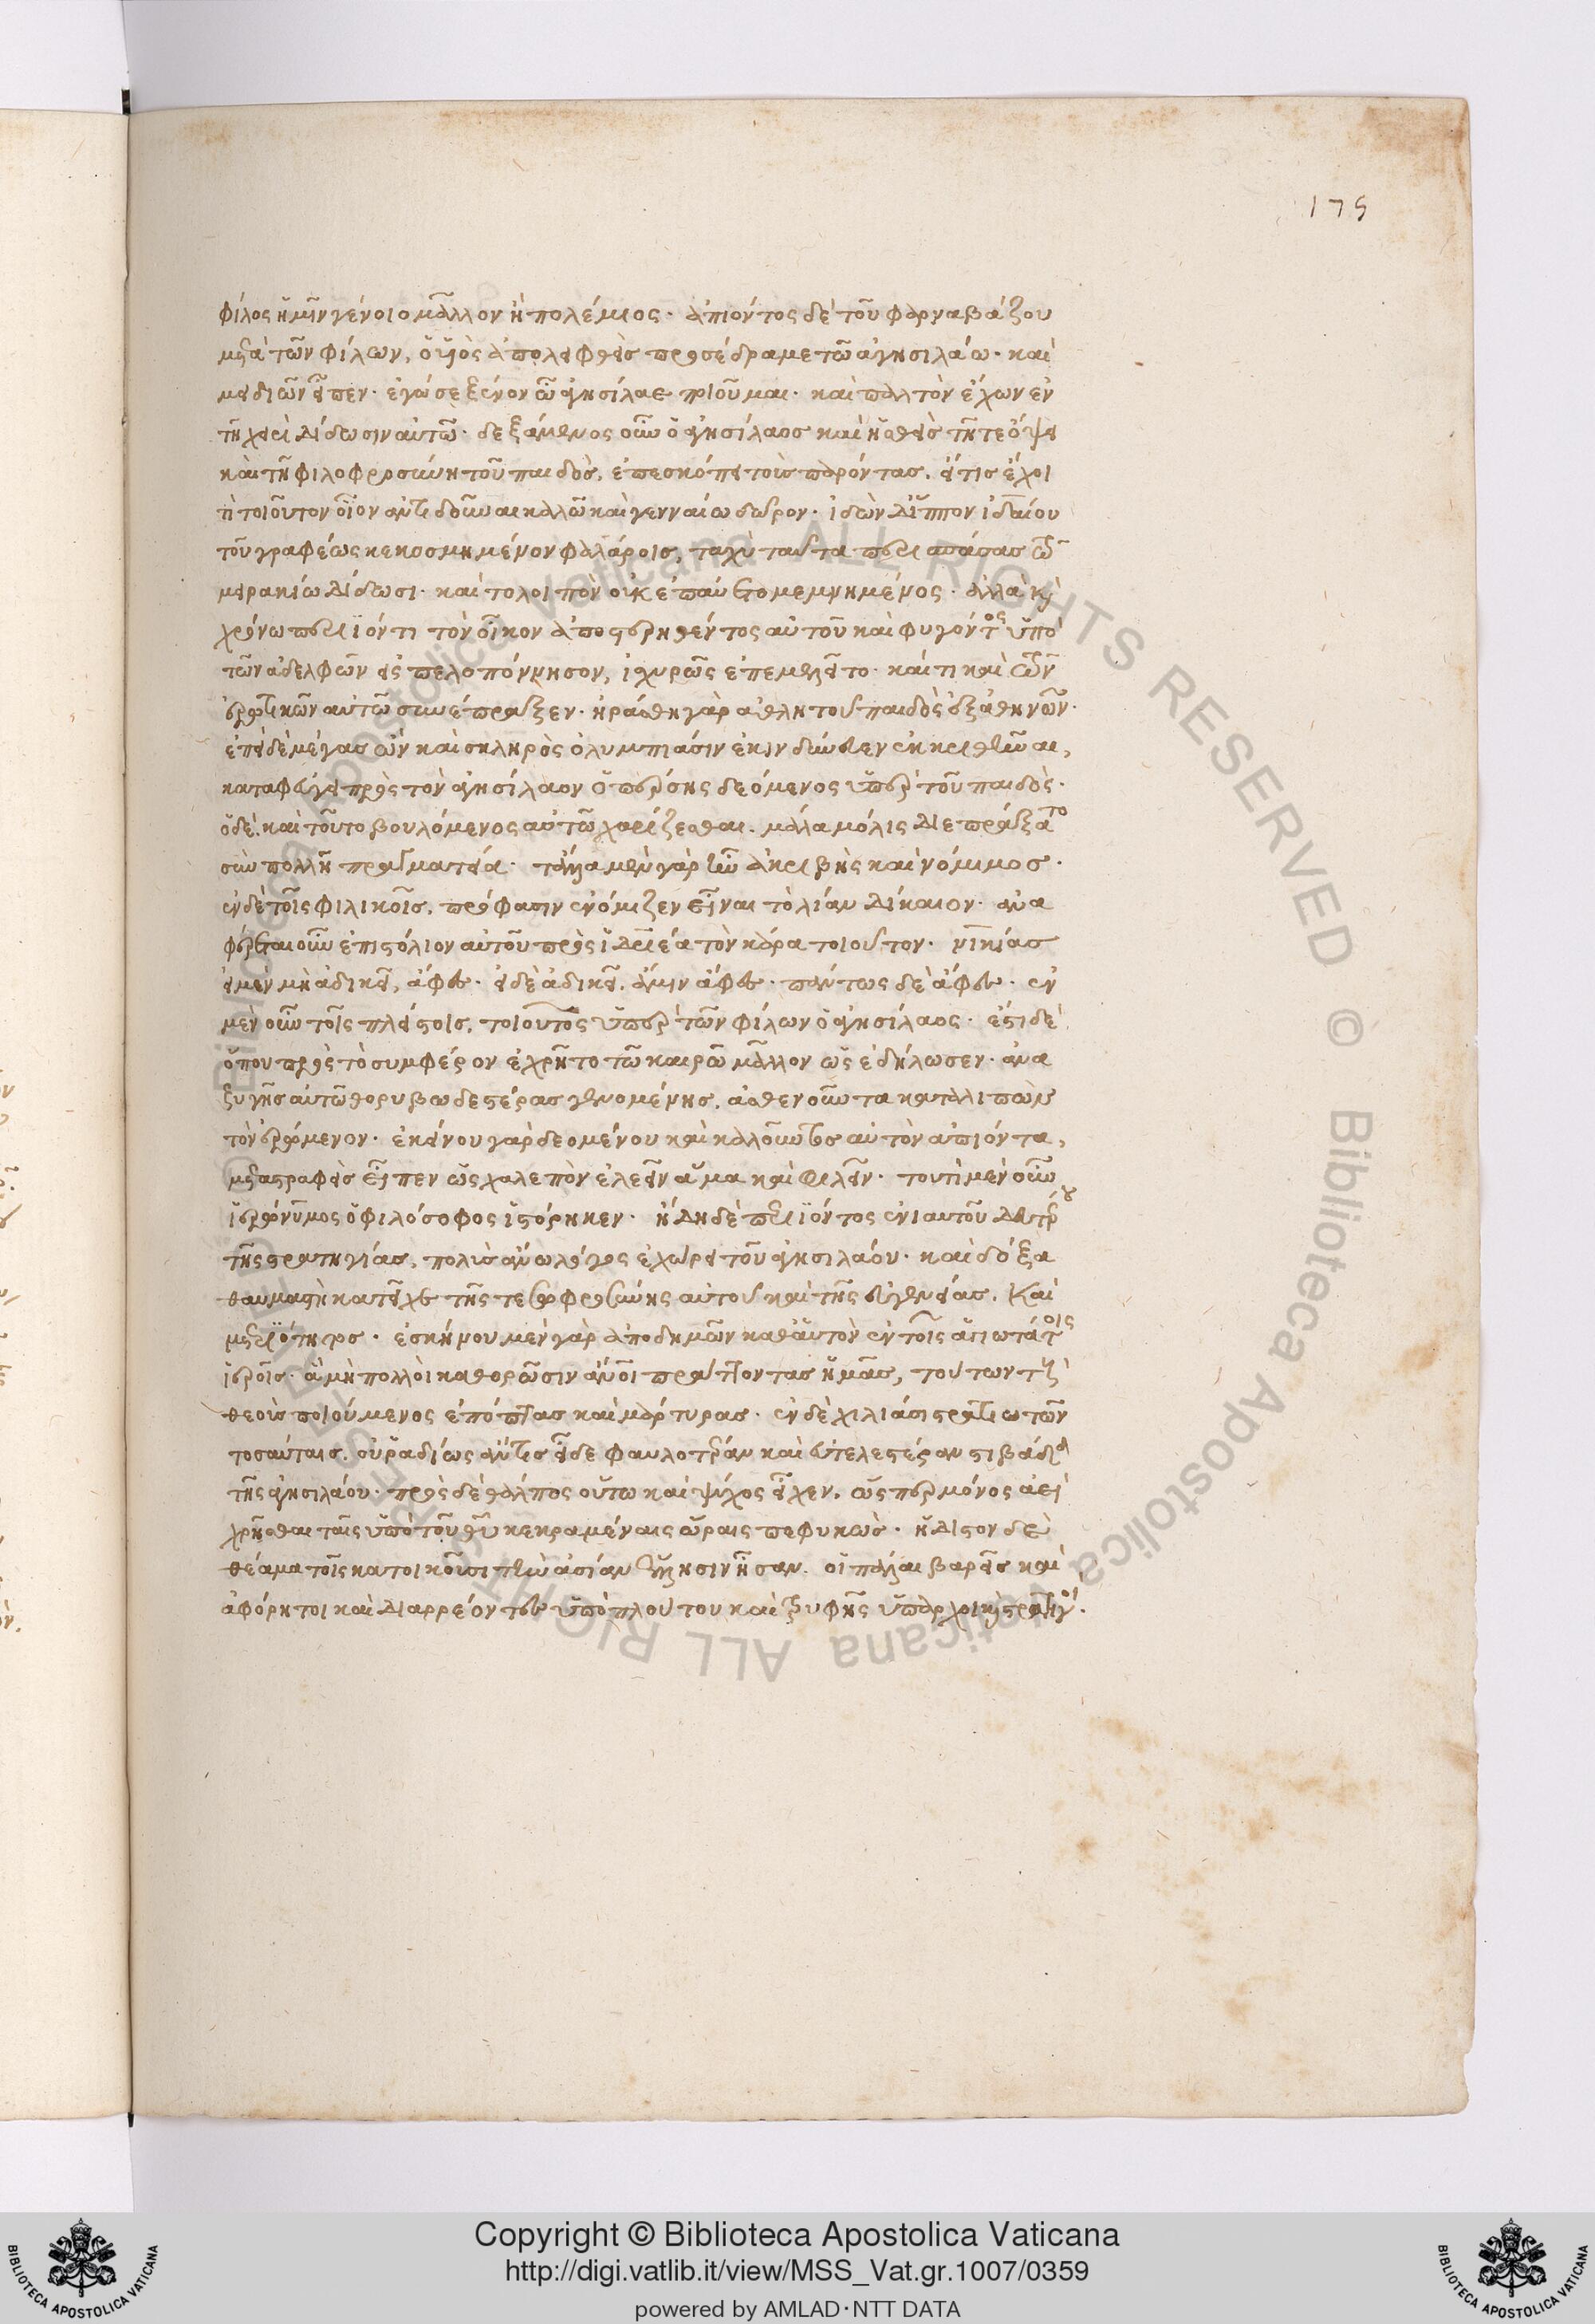 175
φίλος ἡμῖν γένοιο μᾶλλον ἢ πολέμιος. ἀπιόντος δὲ τοῦ φαρναβάζου
μετὰ τῶν φίλων, ὁ υἱὸς ἀπολειφθεὶς προσέδραμε τῶ ἀγησιλάω. καὶ
μειδιῶν εἶπεν. ἐγώ σε ξένον ὦ ἀγησίλαε ποιοῦμαι. καὶ παλτὸν ἔχων ἐν
τῆ χειρὶ δίδωσιν αὐτῶ. δεξάμενος οὖν ὁ ἀγησίλαος καὶ ἡσθεὶς τῆ τε ὄψει
καὶ τῆ φιλοφροσύνη τοῦ παιδὸς, ἐπεσκόπει τοὺς παρόντας, εἴ τις ἔχοι
τι τοιοῦτον οἷον ἀντιδοῦναι καλῶ καὶ γενναίω δῶρον. ἰδὼν δ' ἵππον ἰδαίου
τοῦ γραφέως κεκοσμημένον φαλάροις, ταχὺ ταῦτα περισπάσας τῶ
μειρακίω δίδωσι. καὶ τολοιπὸν οὐκ ἐπαύετο μεμνημένος. ἀλλὰ κ
χρόνω περιϊόντι τὸν οἶκον ἀποστερηθέντος αὐτοῦ καὶ φυγόντος ὑπὸ
τῶν ἀδελφῶν εἰς πελοπόννησον, ἰσχυρῶς ἐπεμελεῖτο. καί τι καὶ τῶν
ἐρωτικῶν αὐτῶ συνέπραξεν. ἠράσθη γὰρ ἀθλητοῦ παιδὸς ἐξ ἀθηνῶν.
ἐπεὶ δὲ μέγας ὢν καὶ σκληρὸς ὀλυμπιάσιν ἐκινδύνευεν ἐκκριθῆναι,
καταφεύγει πρὸς τὸν ἀγησίλαον ὁ πέρσης δεόμενος ὑπὲρ τοῦ παιδὸς.
ὁ δὲ. καὶ τοῦτο βουλόμενος αὐτῶ χαρίζεσθαι. μάλα μόλις διεπράξατο
σὺν πολλῆ πραγματεία. τἄλλα μὲν γὰρ ἦν ἀκριβὴς καὶ νόμιμος.
ἐν δὲ τοῖς φιλικοῖς, πρόφασιν ἐνόμιζεν εἶναι τὸ λίαν δίκαιον. ἀνα
φέρεται οὖν ἐπιστόλιον αὐτοῦ πρὸς ἱδριέα τὸν κάρα τοιοῦτον. νικίας
εἰ μὲν μὴ ἀδικεῖ, ἄφες. εἰ δὲ ἀδικεῖ. ἄμιν ἄφες. πάντως δὲ ἄφες. ἐν
μὲν οὖν τοῖς πλείστοις. τοιοῦτος ὑπὲρ τῶν φίλων ὁ ἀγησίλαος. ἔστι δὲ
ὅπου πρὸς τὸ συμφέρον ἐχρῆτο τῶ καιρῶ μᾶλλον ὡς ἐδήλωσεν. ἀνα
ζυγῆς αὐτῶ θορυβωδεστέρας γενομένης, ἀσθενοῦντα καταλιπὼν
τὸν ἐρώμενον. ἐκείνου γὰρ δεομένου καὶ καλοῦντος αὐτὸν ἀπιόντα,
μεταστραφεὶς εἶπεν ὡς χαλεπὸν ἐλεεῖν ἅμα καὶ φιλεῖν. τουτὶ μὲν οὖν
ἱερώνυμος ὁ φιλόσοφος ἱστόρηκεν. ἤδη δὲ περιϊόντος ἐνιαυτοῦ δευτέρου
τῆς στρατηγίας, πολὺς ἄνω λόγος ἐχώρει τοῦ ἀγησιλάου. καὶ δόξα
θαυμαστὴ κατεῖχε τῆς τε σωφροσύνης αὐτοῦ καὶ τῆς εὐτελείας. Καὶ
μετριότητος. ἐσκήνου μὲν γὰρ ἀποδημῶν καθ' αὑτὸν ἐν τοῖς ἁγιωτάτοις
ἱεροῖς. ἃ μὴ πολλοὶ καθορῶσιν ἄνθρωποι πράττοντας ἡμᾶς, τούτων τοὺς
θεοὺς ποιούμενος ἐπόπτας καὶ μάρτυρας. ἐν δὲ χιλιάσι στρατιωτῶν
τοσαύταις. οὐ ῥαδίως ἄν τις εἶδε φαυλοτέραν καὶ εὐτελεστέραν στιβάδα
τῆς ἀγησιλάου. πρὸς δὲ θάλπος οὕτω καὶ ψύχος εἶχεν. ὥσπερ μόνος ἀεὶ
χρῆσθαι ταῖς ὑπὸ τοῦ θῦ κεκραμέναις ὥραις πεφυκὼς. ἥδιστον δὲ
θέαμα τοῖς κατοικοῦσι τὴν ἀσίαν ἕλλησιν ἦσαν. οἱ πάλαι βαρεῖς καὶ
ἀφόρητοι καὶ διαρρέοντες ὑπὸ πλούτου καὶ τρυφῆς ὕπαρχοι κ στρατηγοί.
Copyright © Biblioteca Apostolica Vaticana
http://digi.vatlib.it/view/MSS_Vat.gr.1007/0359
powered by AMLAD·NTT DATA